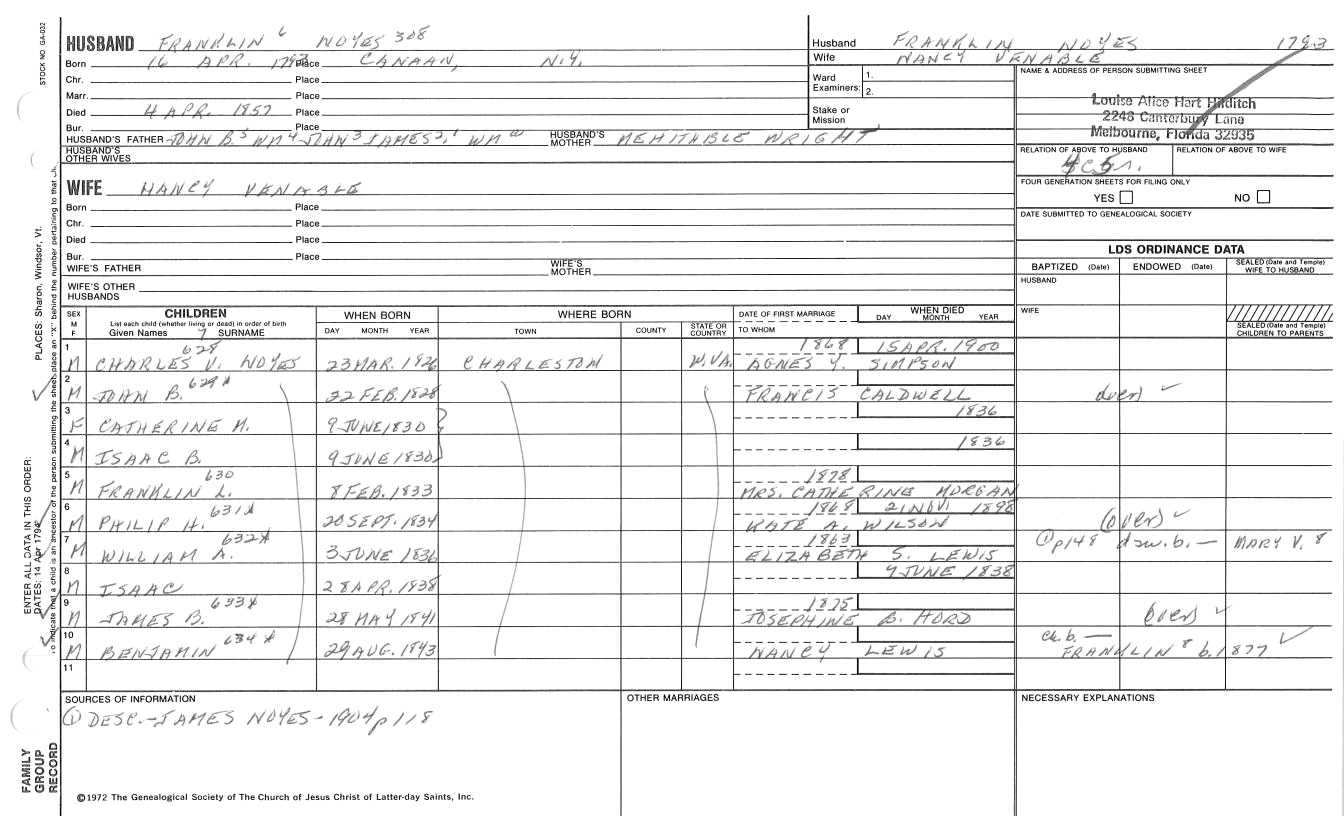 STOCK NO. GA-032
HUSBAND FRANKLIN 6 NOYES 308
Born 16 APR. 1793 Place CANAAN, N.Y.
Chr. Place
Marr. Place
Died 4 APR. 1857 Place
Bur. Place
HUSBAND'S FATHER JOHN B.5 WM 4 JOHN 3 JAMES 2, 1 WM HUSBAND'S MOTHER MEHITABLE WRIGHT
HUSBAND'S OTHER WIVES
Husband FRANKLIN NOYES 1793
Wife NANCY VENABLE
Ward Examiners: 1.
2.
Stake or Mission
NAME & ADDRESS OF PERSON SUBMITTING SHEET
Louise Alice Hart Hilditch
2248 Canterbury Lane
Melbourne, Florida 32935
RELATION OF ABOVE TO HUSBAND RELATION OF ABOVE TO WIFE
FOUR GENERATION SHEETS FOR FILING ONLY
YES NO
DATE SUBMITTED TO GENEALOGICAL SOCIETY
WIFE NANCY VENABLE
Born Place
Chr. Place
Died Place
Bur. Place
WIFE'S FATHER WIFE'S MOTHER
WIFE'S OTHER HUSBANDS
LDS ORDINANCE DATA
BAPTIZED (Date) ENDOWED (Date) SEALED (Date and Temple) WIFE TO HUSBAND
HUSBAND
WIFE
SEALED (Date and Temple) CHILDREN TO PARENTS
SEX M F
CHILDREN
List each child (whether living or dead) in order of birth
Given Names 7 SURNAME
WHEN BORN
DAY MONTH YEAR
WHERE BORN
TOWN COUNTY STATE OR COUNTRY
DATE OF FIRST MARRIAGE
TO WHOM
WHEN DIED
DAY MONTH YEAR
1 628 1868 15 APR. 1900
M CHARLES V. NOYES 23 MAR. 1826 CHARLESTON W.VA. AGNES Y. SIMPSON
2 629*
M JOHN B. 22 FEB. 1828 FRANCIS CALDWELL (over)
3 1836
F CATHERINE M. 9 JUNE 1830
4 1836
M ISAAC B. 9 JUNE 1830
5 630 1878
M FRANKLIN L. 8 FEB. 1833 MRS. CATHERINE MORGAN
6 631* 1868 21 NOV. 1898
M PHILIP H. 20 SEPT. 1834 KATE A. WILSON (over)
7 632* 1863
M WILLIAM A. 3 JUNE 1836 ELIZABETH S. LEWIS ① p148 dau. b. — MARY V. 8
8 9 JUNE 1838
M ISAAC 28 APR. 1838
9 633* 1875
M JAMES B. 28 MAY 1841 JOSEPHINE B. HORD (over)
10 634* ch. b. —
M BENJAMIN 29 AUG. 1843 NANCY LEWIS FRANKLIN 8 b. 1877
11
SOURCES OF INFORMATION
① DESC.-JAMES NOYES-1904 p118
OTHER MARRIAGES
NECESSARY EXPLANATIONS
©1972 The Genealogical Society of The Church of Jesus Christ of Latter-day Saints, Inc.
FAMILY GROUP RECORD
ENTER ALL DATA IN THIS ORDER:
DATES: 14 Apr 1794
PLACES: Sharon, Windsor, Vt.
To indicate that a child is an ancestor of the person submitting the sheet, place an "X" behind the number pertaining to that